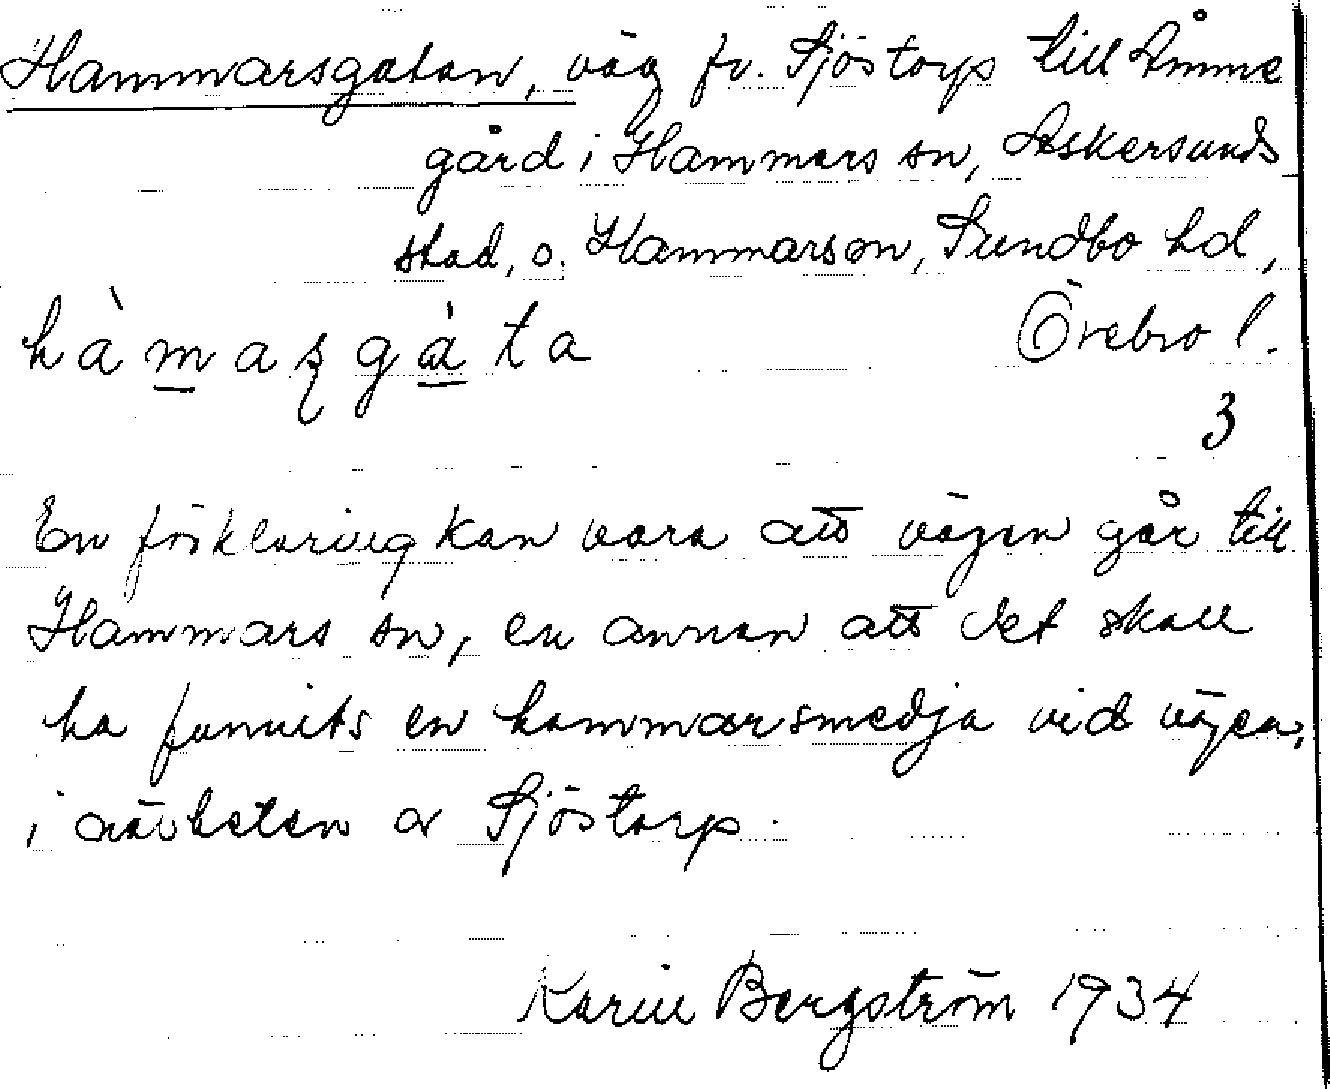 Hammarsgatan, väg fr. Sjöstorp till Åmme
gård i Hammars sn, Askersunds
stad, o. Hammarsn, Sundbo hd,
hàmaʂgàta Örebro l.
3
En förklaring kan vara att vägen går till
Hammars sn, en annan att det skall
ha funnits en hammarsmedja vid vägen,
i närheten av Sjöstorp.
Karin Bergström 1934